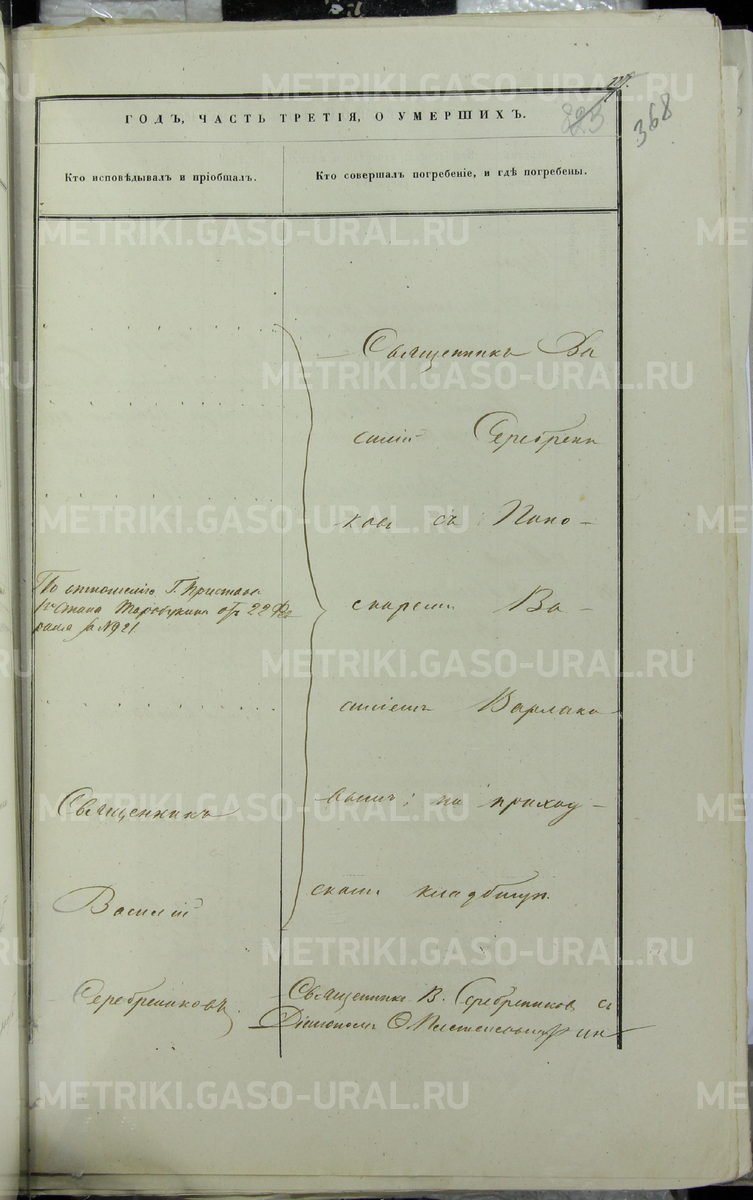 368
ГОДЪ, ЧАСТЬ ТРЕТІЯ, О УМЕРШИХЪ.
Кто исповѣдывалъ и пріобщалъ.
Кто совершалъ погребеніе, и гдѣ погребены.
По отношенію Г. Пристава
Стана отъ 22
за № 921
Священникъ
Василій
Серебрениковъ.
Священникъ Ва
силій Серебрени
ковъ съ Поно-
маремъ Ва-
силіемъ Варлако-
вымъ; на приход-
скомъ кладбищѣ.
Священникъ В. Серебрениковъ съ
Діакономъ
METRIKI.GASO-URAL.RU